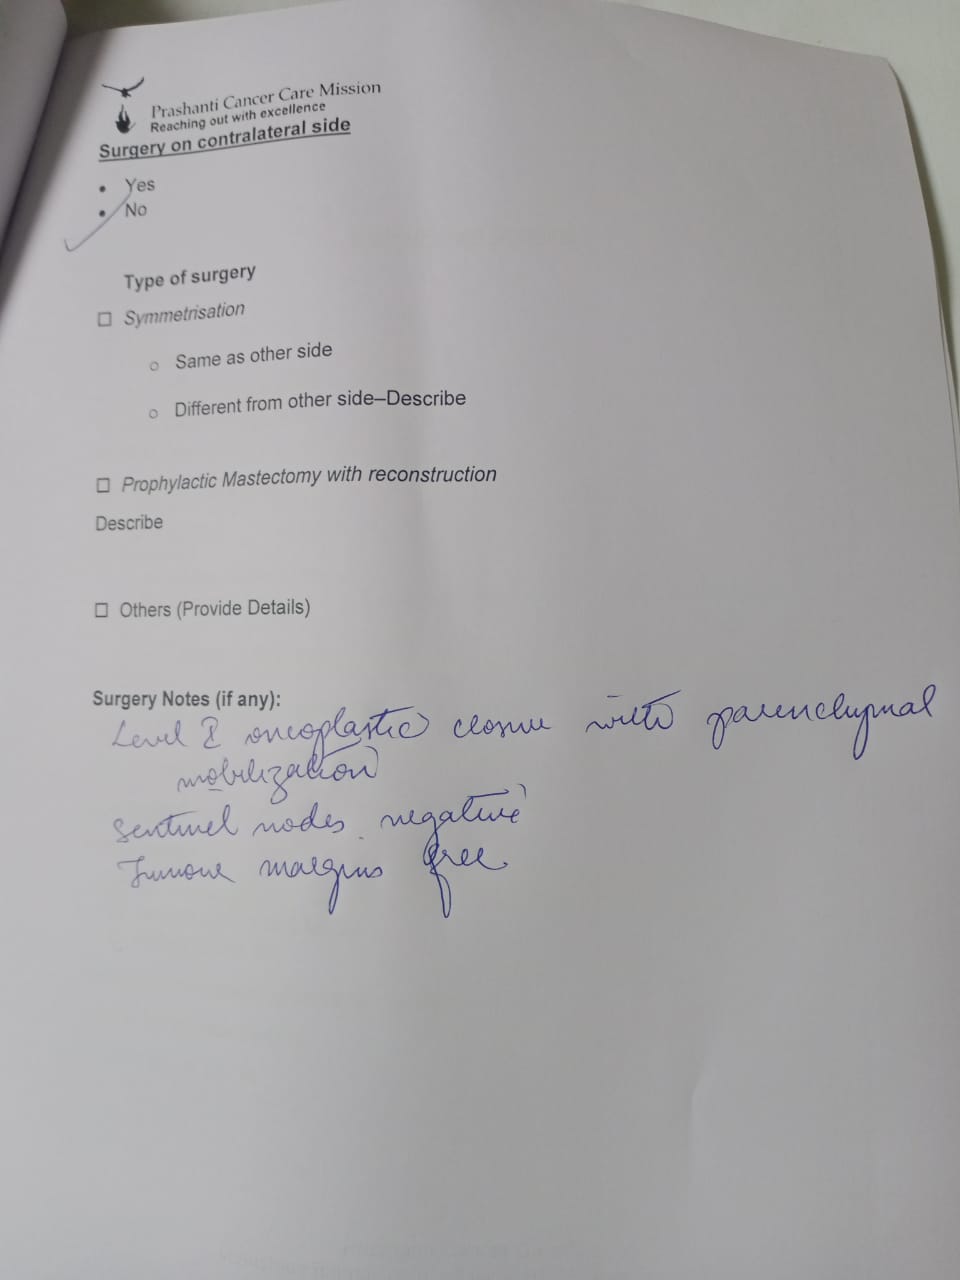 Prashanti Cancer Care Mission
Reaching out with excellence
Surgery on contralateral side
• Yes
• No
Type of surgery
☐ Symmetrisation
○ Same as other side
○ Different from other side–Describe
☐ Prophylactic Mastectomy with reconstruction
Describe
☐ Others (Provide Details)
Surgery Notes (if any):
Level oncoplastic closure with parenchymal
mobilization
Sentinel nodes negative
Tumour margins free